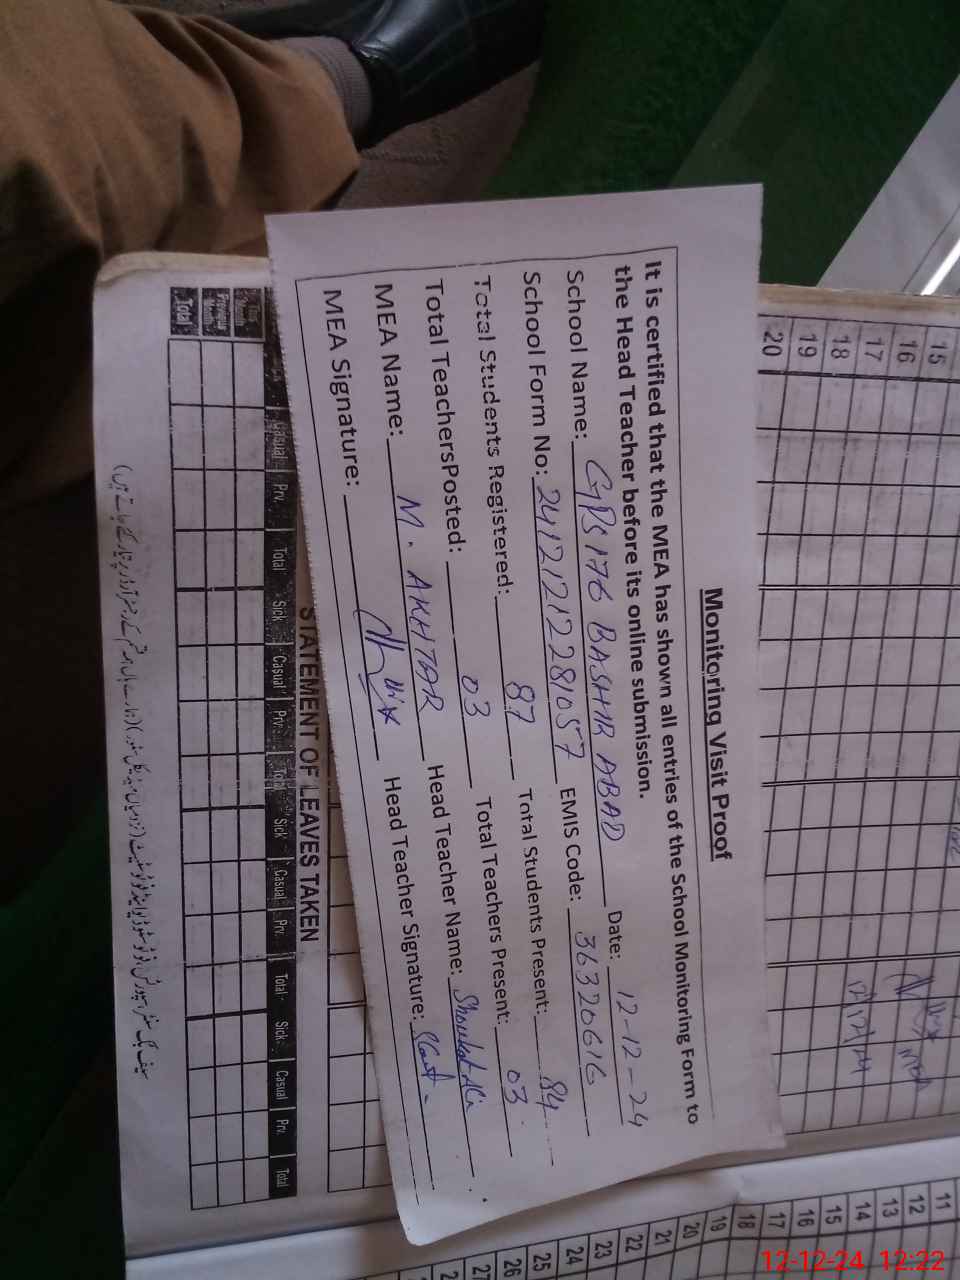 Monitoring Visit Proof
It is certified that the MEA has shown all entries of the School Monitoring Form to
the Head Teacher before its online submission.
School Name: GPS 176 BASHIR ABAD Date: 12-12-24
School Form No: 24121212281057 EMIS Code: 36320616
Total Students Registered: 87 Total Students Present: 84
Total TeachersPosted: 03 Total Teachers Present: 03
MEA Name: M. AKHTAR Head Teacher Name: Shoukat Ali
MEA Signature: Head Teacher Signature:
STATEMENT OF LEAVES TAKEN
Casual Prv. Total Sick Casual Prv. Total Sick Casual Prv. Total Sick Casual Prv. Total
Previous
Total
15
16
17
18
19
20
MEA
12/12/24
11
12
13
14
15
16
17
18
19
20
21
22
23
24
25
26
27
12-12-24 12:22